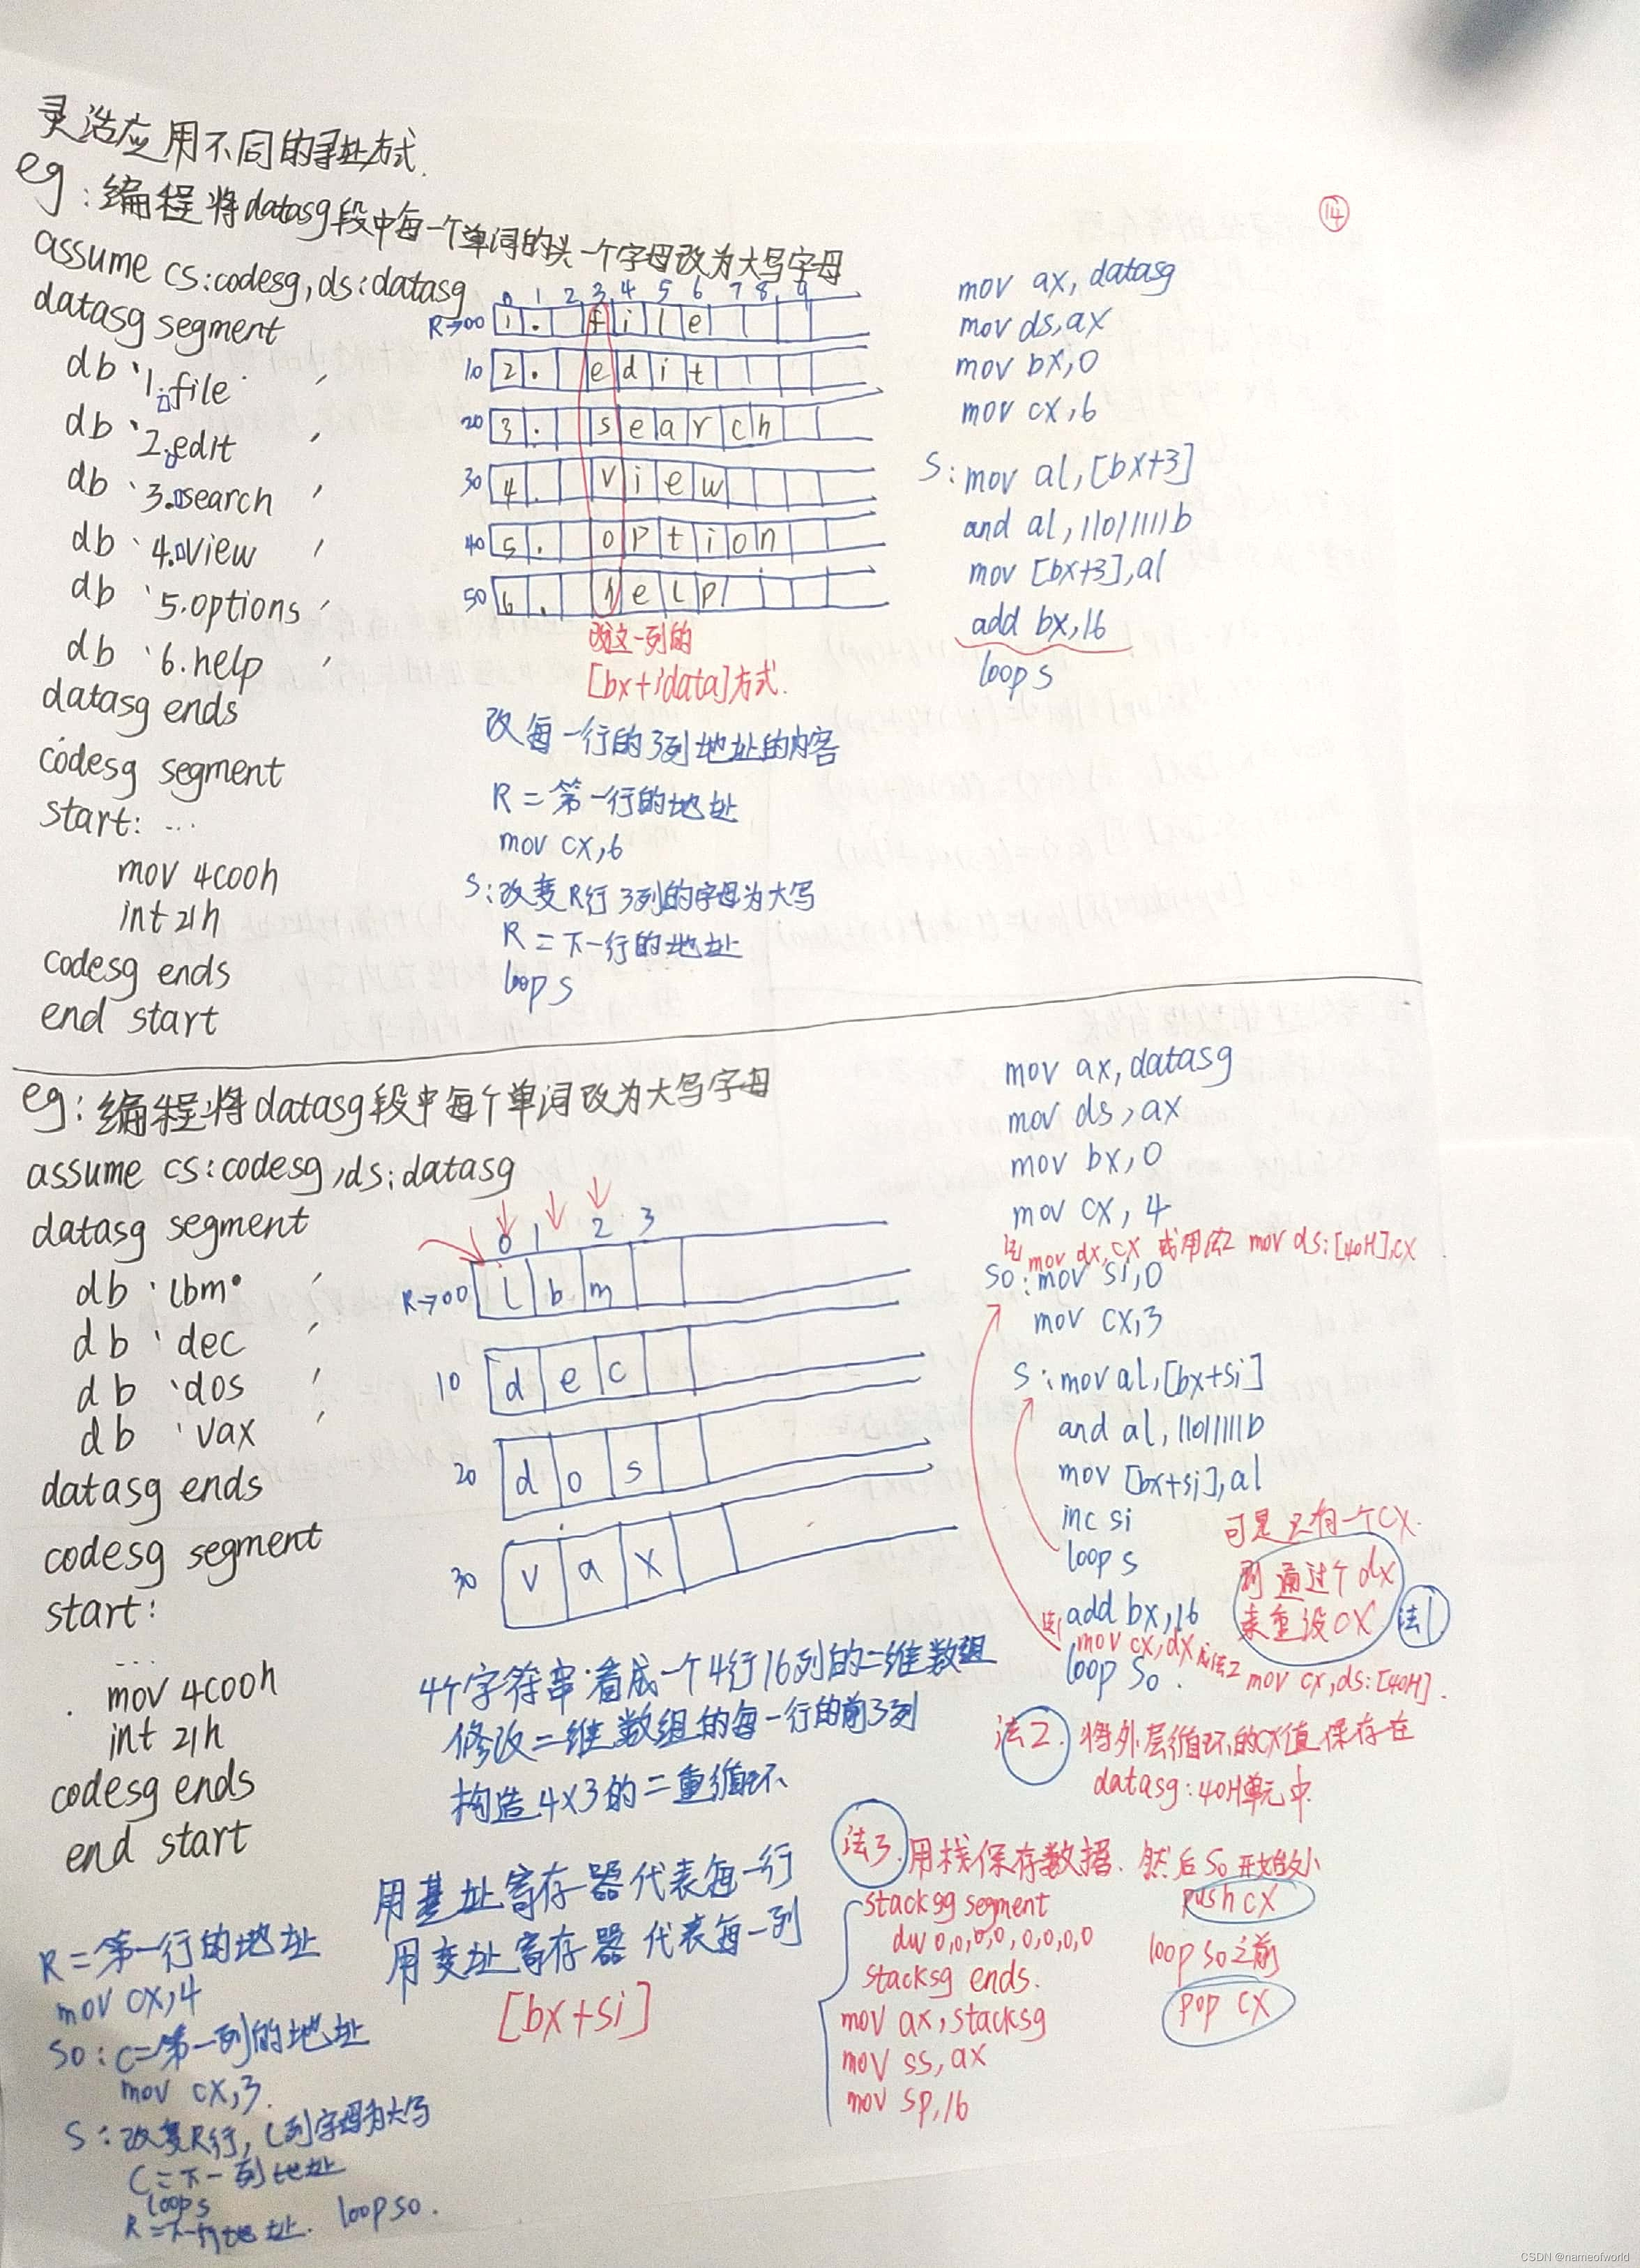 灵活应用不同的寻址方式.
eg:编程将datasg段中每一个单词的头一个字母改为大写字母
⑭
assume cs:codesg,ds:datasg
datasg segment
db '1.file '
db '2.edit '
db '3.search '
db '4.view '
db '5.options '
db '6.help '
datasg ends
codesg segment
start: ...
mov 4c00h
int 21h
codesg ends
end start
0 1 2 3 4 5 6 7 8 9
R→00 1 . f i l e
10 2 . e d i t
20 3 . s e a r c h
30 4 . v i e w
40 5 . o p t i o n
50 6 . h e l p
改这一列的
[bx+idata]方式.
改每一行的3列地址的内容
R=第一行的地址
mov cx,6
S:改变R行3列的字母为大写
R=下一行的地址
loop s
mov ax,datasg
mov ds,ax
mov bx,0
mov cx,6
S:mov al,[bx+3]
and al,11011111b
mov [bx+3],al
add bx,16
loop s
eg:编程将datasg段中每个单词改为大写字母
assume cs:codesg,ds:datasg
datasg segment
db 'lbm '
db 'dec '
db 'dos '
db 'vax '
datasg ends
codesg segment
start:
...
mov 4c00h
int 21h
codesg ends
end start
0 1 2 3
R→00 l b m
10 d e c
20 d o s
30 v a x
4个字符串看成一个4行16列的二维数组
修改二维数组的每一行的前3列
构造4x3的二重循环
用基址寄存器代表每一行
用变址寄存器代表每一列
[bx+si]
R=第一行的地址
mov cx,4
S0:C=第一列的地址
mov cx,3.
S:改变R行,C列字母为大写
C=下一列地址
loop s
R=下一行地址. loop s0.
mov ax,datasg
mov ds,ax
mov bx,0
mov cx,4
法1 mov dx,cx 或用法2 mov ds:[40H],cx
S0:mov si,0
mov cx,3
S:mov al,[bx+si]
and al,11011111b
mov [bx+si],al
inc si
loop s
可是只有一个CX.
则通过个dx
来重设CX 法1
add bx,16
法1 mov cx,dx 或法2 mov cx,ds:[40H].
loop S0.
法2. 将外层循环的CX值保存在
datasg:40H单元中.
法3.用栈保存数据. 然后S0开始
stacksg segment
dw 0,0,0,0,0,0,0,0
stacksg ends.
mov ax,stacksg
mov ss,ax
mov sp,16
push CX
loop s0之前
pop CX
CSDN @nameofworld